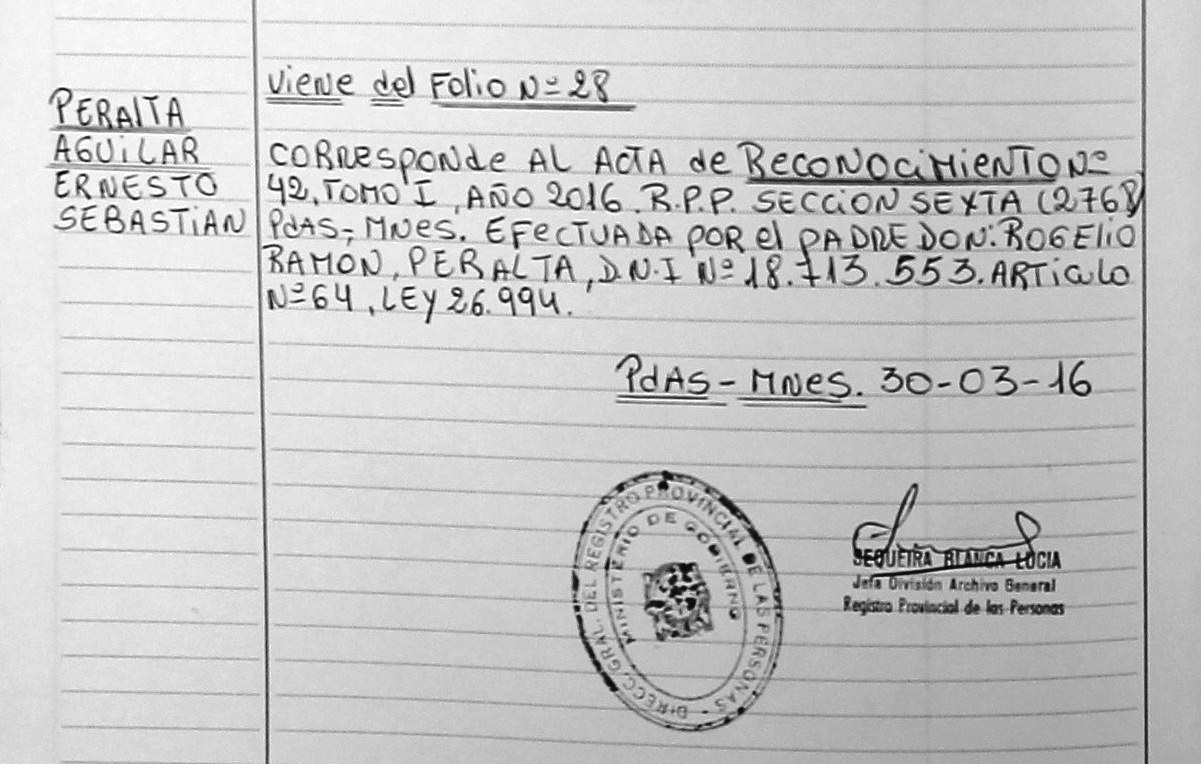 Viene del Folio Nº 28
PERAlTA
AGUiLAR
ERNESTO
SEBASTIAN
CORResponde AL ActA de Reconocimiento Nº
42, TOMO I, AÑO 2016. R.P.P. SECCION SEXTA (2768)
PdAS-, MNes. EFectuada por el PADRE DON: ROGELIO
RAMON, PERALTA, D.N.I Nº 18.713.553. ARTiculo
Nº 64, LEY 26.994.
PdAS - MNes. 30-03-16
DIRECC. GRAL. DEL REGISTRO PROVINCIAL DE LAS PERSONAS
MINISTERIO DE GOBIERNO
SEQUEIRA BLANCA LUCIA
Jefa División Archivo General
Registro Provincial de las Personas